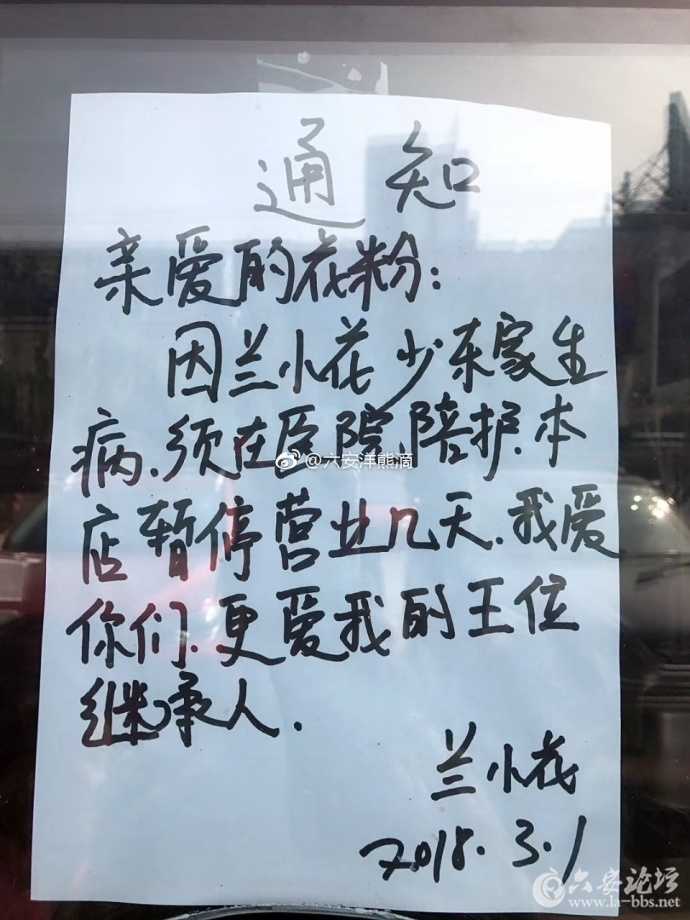 通知
亲爱的花粉：
因兰小花少东家生
病、须在医院陪护、本
店暂停营业几天、我爱
你们、更爱我的王位
继承人.
兰小花
2018.3.1
@六安洋熊滴
六安论坛
www.la-bbs.net